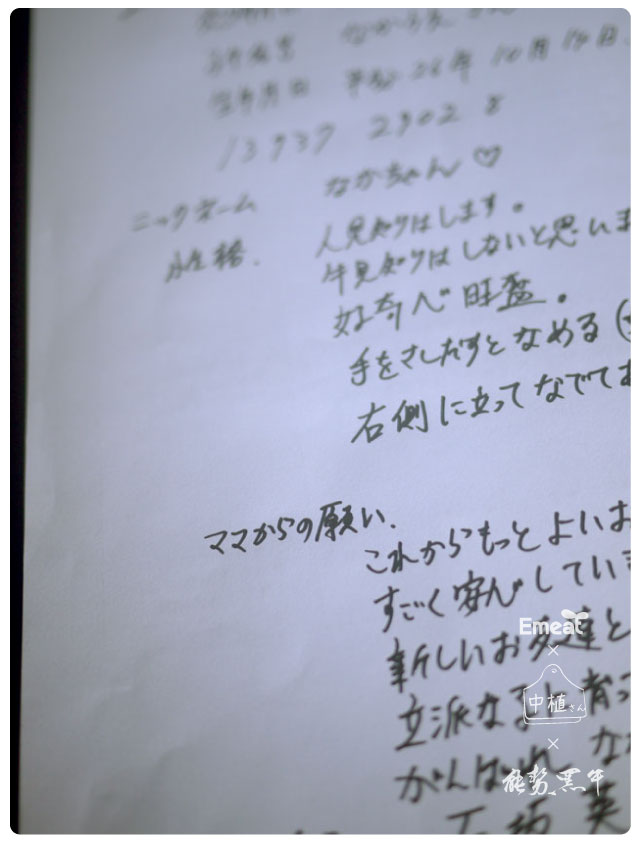 生年月日 平成26年 10月14日
13937 2902 8
ニックネーム なかちゃん♡
性格. 人見知りはします。
牛見知りはしないと思いま
好奇心旺盛。
手をさしだすとなめる(
右側に立ってなでてお
ママからの願い.
これからもっとよいお
すごく安心していま
新しいお友達と
立派な 育っ
がんばれ な
英
Emeat
×
中植さん
×
能勢黒牛